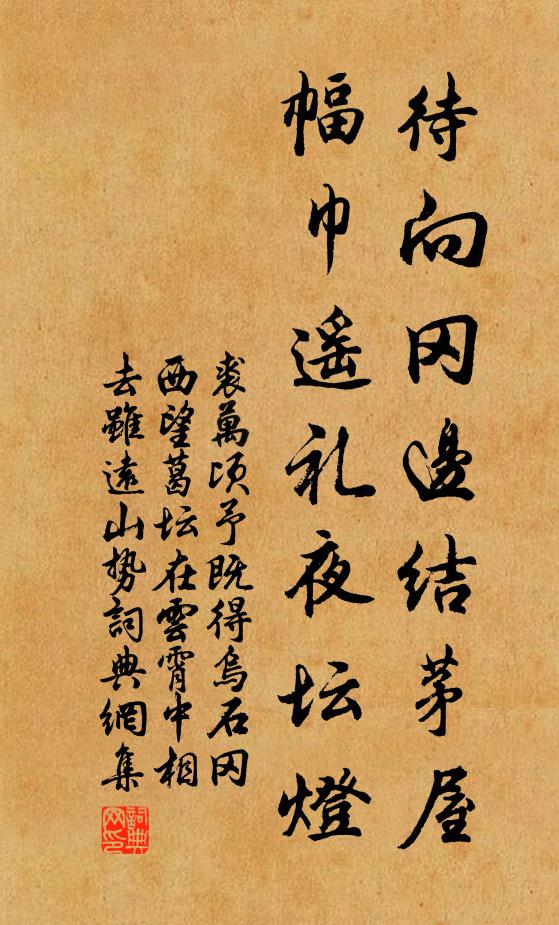 待向冈邊结茅屋
幅巾遥礼夜坛燈
裘萬顷予既得烏石冈
西望葛坛在雲霄中相
去雖遠山势詞典網集
詞典网印